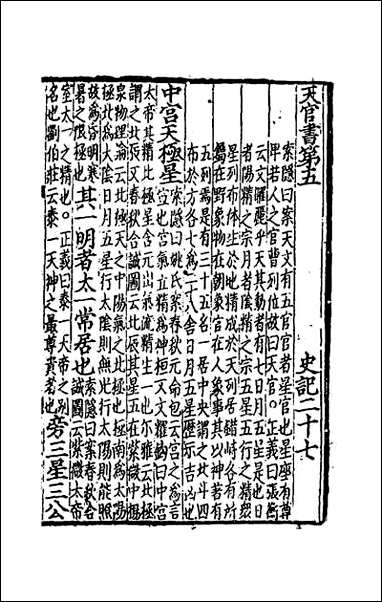 天官書第五　史記二十七
索隱曰案天文有五官官者星官也星座有尊
卑若人之官曹列位故曰天官。正義曰張衡
云文曜麗乎天其動者有七日月五星是也日
者陽精之宗月者陰精之宗五星五行之精衆
星列布體生於地精成於天列居錯峙各有所
屬在野象物在朝象官在人象事其以神著有
五列焉是有三十五名一居中央謂之北斗四
布於方各七爲二十八舍日月五星歷示吉凶也
中宮天極星索隱曰姚氏案春秋元命包云宮之爲言宣也宮氣立精爲神垣又文耀鈎曰中宮
太帝其精北極星含元出氣流精生一也尔雅云北極謂之北辰又春秋合誠圖云北辰其星五在紫微中楊
泉物理論云北極天之中陽氣之北極也極南爲太陽極北爲太陰日月五星行太陰則無光行太陽則能照
故爲昏明寒暑之限極也其一明者太一常居也索隱曰案春秋合誠圖云紫微太帝
室太一之精也。正義曰泰一天帝之别名也劉伯莊云泰一天神之最尊貴者也旁三星三公